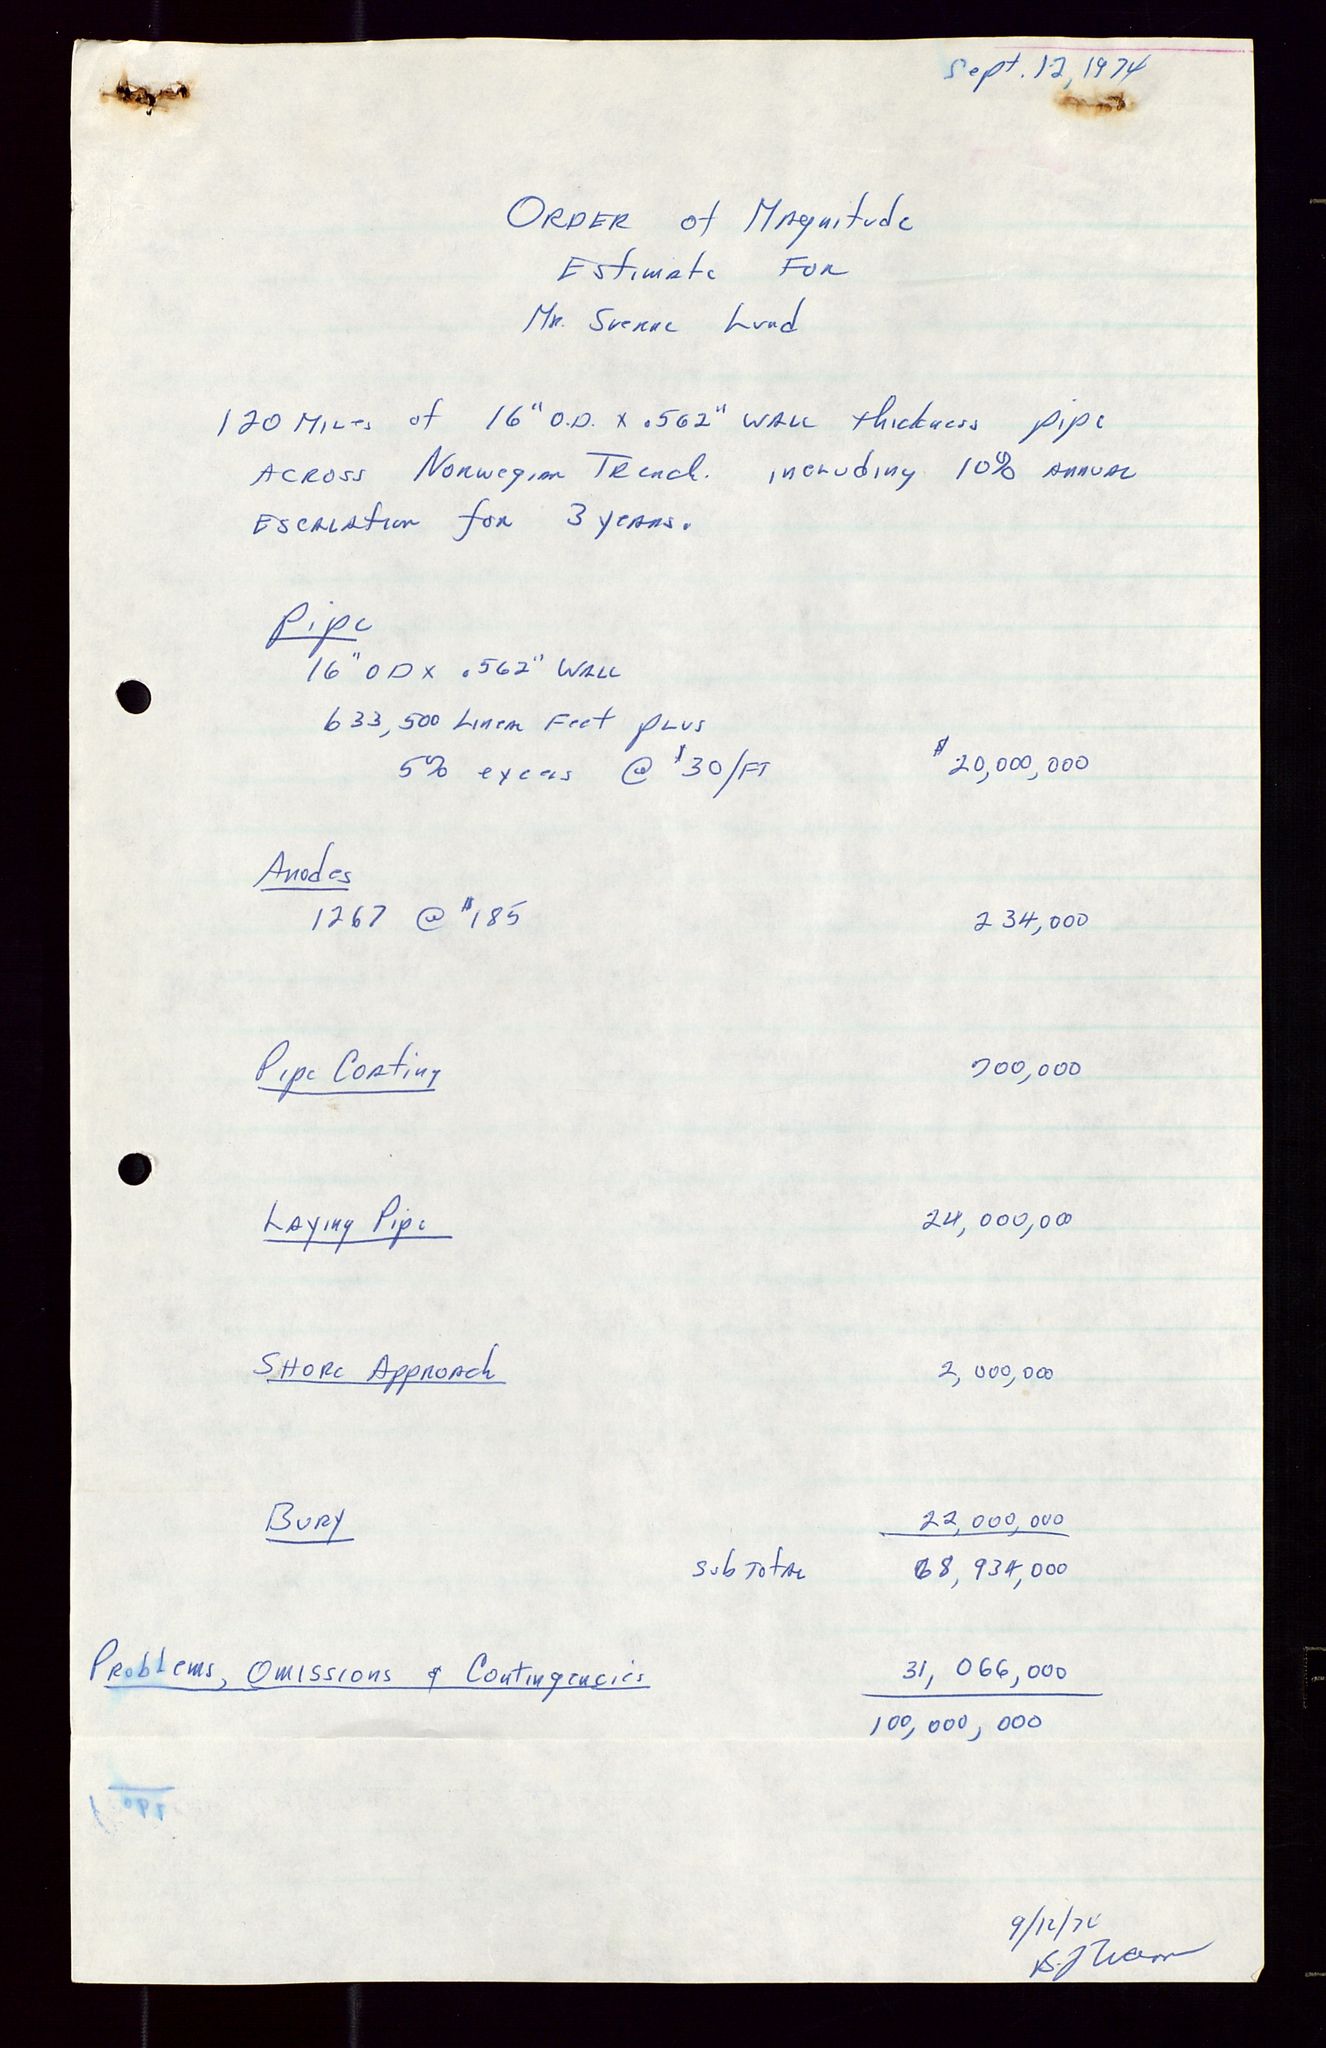 Sept. 12, 1974
Order of Magnitude
Estimate For
Mr. Sverre Lund
120 Miles of 16" O.D. x .562" Wall thickness pipe
Across Norwegian Trench. including 10% Annual
Escalation for 3 years.
Pipe
16" OD x .562" Wall
633,500 Linear Feet plus
5% excess @ $30/FT $20,000,000
Anodes
1267 @ $185 234,000
Pipe Coating 700,000
Laying Pipe 24,000,000
Shore Approach 2,000,000
Bury 22,000,000
Sub Total 68,934,000
Problems, Omissions & Contingencies 31,066,000
100,000,000
9/12/74